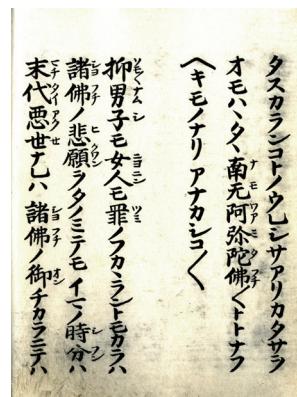 タスカランコトノウレシサアリカタサヲ
オモハヽタヽ南无阿弥陀佛〱トトナフ
ヘキモノナリアナカシコ〱
抑男子モ女人モ罪ノフカヽラントモカラハ
諸佛ノ悲願ヲタノミテモイマノ時分ハ
末代悪世ナレハ諸佛ノ御チカラニテハ